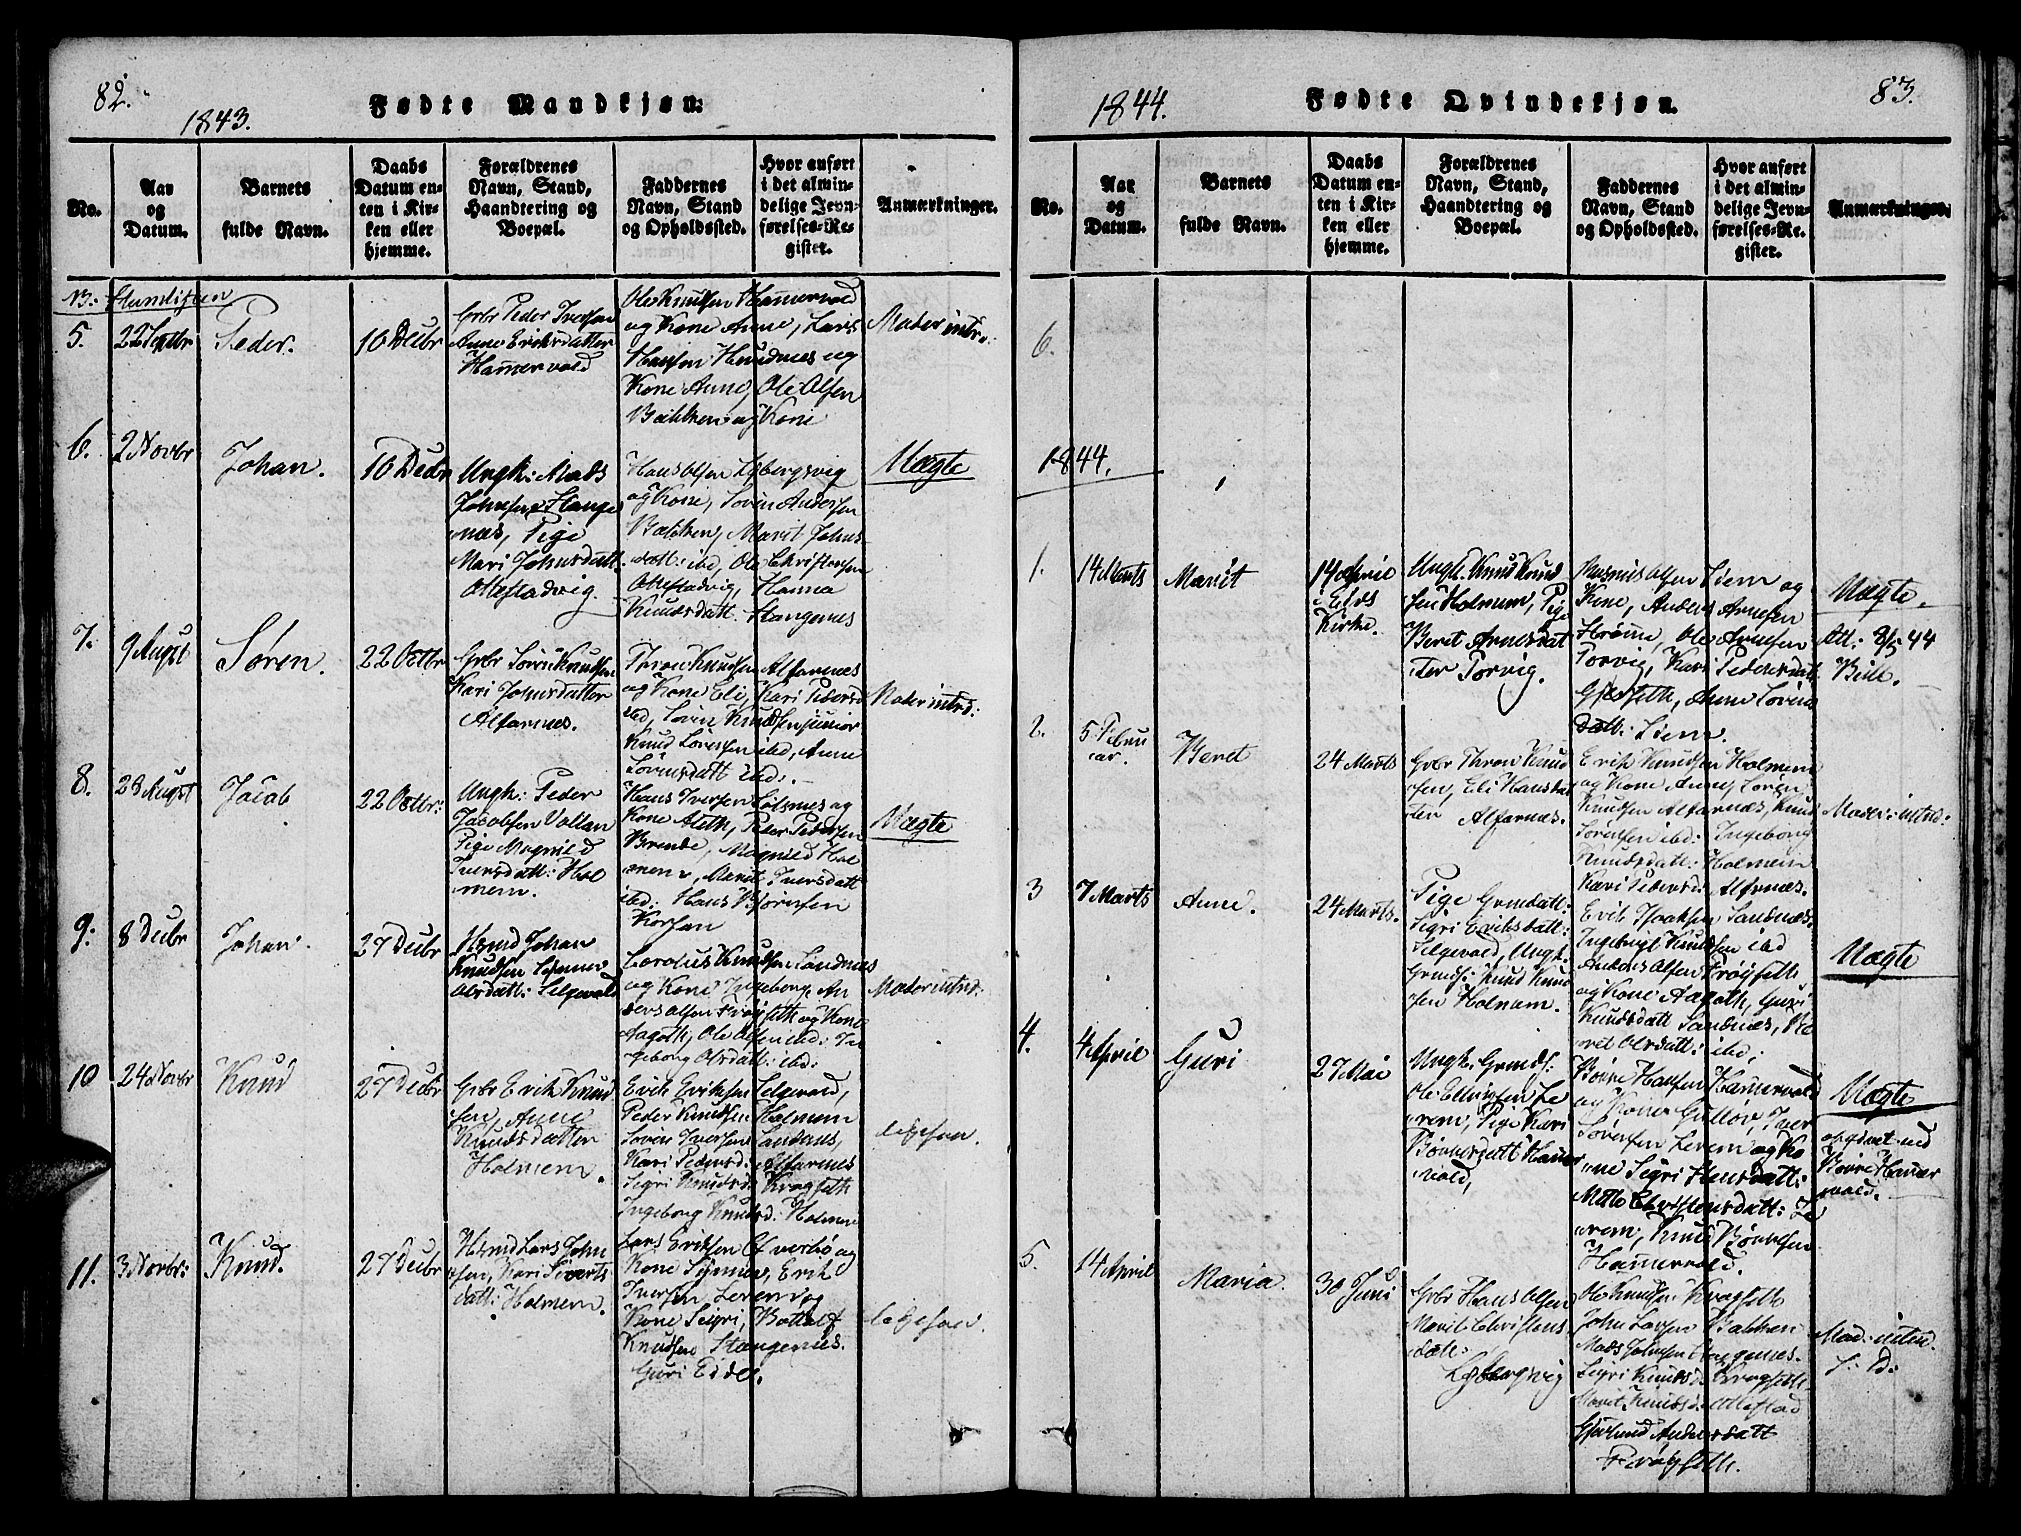 82.
1843.
Fødte Mandkjøn.
No.
Aar og Datum.
Barnets fulde Navn.
Daabs Datum enten i Kirken eller hjemme.
Forældrenes Navn, Stand, Haandtering og Boepæl.
Faddernes Navn, Stand og Opholdssted.
Hvor anført i det almindelige Jevnførelses-Register.
Anmærkninger.
5.
22 Septbr
Peder.
10 Decbr
Grbr Peder Iversen
Anne Eriksdatter
Hammervold
Ole Knudsen Hammervold
og Kone Anne, Lars
Hansen Hundnes og
Kone Anne, Ole Olsen
Bakken og Kone
Moder intr.:
6.
2 Novbr
Johan.
10 Decbr
Ungk: Mads
Johnsen Stange
næs, Pige
Mari Johnsdatt.
Ottestadvig.
Hans Olsen Lybergsvig
og Kone, Søren Andersen
Bakken, Marit Johns
datt: ibd, Ole Christensen
Ottestadvig, Hanna
Knudsdatt. Stangenes
Uægte
7.
9 Augst
Søren.
22 Octbr
Grbr Søren Knudsen
Kari Johnsdatter
Alfarnæs.
Thron Knudsen Alfarnæs
og Kone Eli, Kari Pedersd
ibd, Søren Knudsen junior
Knud Sørensen ibd, Anne
Sørensdatt ibd:.
Moder intrd:
8.
28 Augst
Jacob
22 Octbr:
Ungk: Peder
Jacobsen Vollan
Pige Magnild
Iversdatt: Hol
mem.
Hans Iversen Sølsnes og
Kone Aleth, Peder Pedersen
Brende, Magnild Hol
mem, Marit Iversdatt
ibd: Hans Bjørnsen
Korsan
Uægte
9.
8 Decbr
Johan.
27 Decbr
Hsmd Johan
Knudsen Synnev
Olsdatt: Selgevold
Carolus Knudsen Sandnes
og Kone Ingeborg, An
ders Olsen Frøyseth og Kone
Aagoth, Ole Olsen ibd: In
geborg Olsdatt: ibd:
Moder intrd:
10
24 Novbr
Knud
27 Decbr
Grbr Erik Knud
sen, Anne
Knudsdatter
Holmem.
Erik Eriksen Selgevold,
Peder Knudsen Holmem
Søren Iversen Sandnes,
Kari Pedersd: Alfarnes
Sigri Knudsd: Kragseth
Ingeborg Knudsd: Holmem
ligesaa.
11.
3 Novbr:
Knud.
27 Decbr
Hsmd Lars John
sen, Kari Siverts
datt: Holmem.
Lars Eriksen Øverbø og
Kone Synnev, Erik
Iversen Lerem og
Kone Sigri, Bottolf
Knudsen Stangenes.
Guri Eide.
ligesaa.
1844.
Fødte Qvindekjøn.
83.
No.
Aar og Datum.
Barnets fulde Navn.
Daabs Datum enten i Kirken eller hjemme.
Forældrenes Navn, Stand, Haandtering og Boepæl.
Faddernes Navn, Stand og Opholdssted.
Hvor anført i det almindelige Jevnførelses-Register.
Anmærkninger.
6.
1844.
1.
14 Marts
Marit
14 April
i Eids
Kirke.
Ungk. Knud Knud
sen Holmem, Pige
Beret Arnesdat
ter Torvig.
Magnus Olsen Siem og
Kone, Anders Arnesen
Strømme, Ole Arnesen
Torvig, Kari Pedersdatt
Gjerseth, Anne Sørens
datt: Siem.
Uægte.
Att: 8/5 44
Bill.
2.
5 Februar.
Beret
24 Marts
Grbr Thron Knud
sen, Eli Hansdat
ter Alfarnæs.
Erik Knudsen Holmem
og Kone Anne, Søren
Knudsen Alfarnæs, Knud
Sørensen ibd: Ingeborg
Knudsdatt: Holmem
Kari Pedersd: Alfarnæs.
Moder: intrd:
3
7 Marts
Anne.
24 Marts.
Pige Grmdatt:
Sigri Eriksdatt:
Selgevold, Ungk:
Grmds: Knud Knud
sen Holmem.
Erik Isaaksen Sandnæs.
Ingebrigt Knudsen ibd
Anders Olsen Frøyseth
og Kone Aagoth, Guri
Knudsdatt Sandnæs, Be
ret Olsdatt: ibd;
Uægte
4.
4 April
Guri
27 Mai
Ungk. Grmds:
Ole Ellingsen Le
rem, Pige Kari
Bønnersdatt Hamer
vold,
Børre Hansen Hamervold
og Kone Gullou, Iver
Sørensen Lerem og Ko
ne Sigri Hansdatt:
Mette Christensdatt: Le
rem, Knud Børresen
Hammervold.
Uægte
opgivet ved
Børre Hamer
vold.
5.
14 April
Maria.
30 Juni
Grbr Hans Olsen
Marit Christens
datt:
Lybergvig
Ole Knudsen Kragseth
John Larsen Bakken
Mads Johnsen Stangenes.
Sigri Knudsd: Kragseth
Marit Knudsd: Ottestad
Gjertrud Andersdatt
Frøyseth.
Mod: intrd